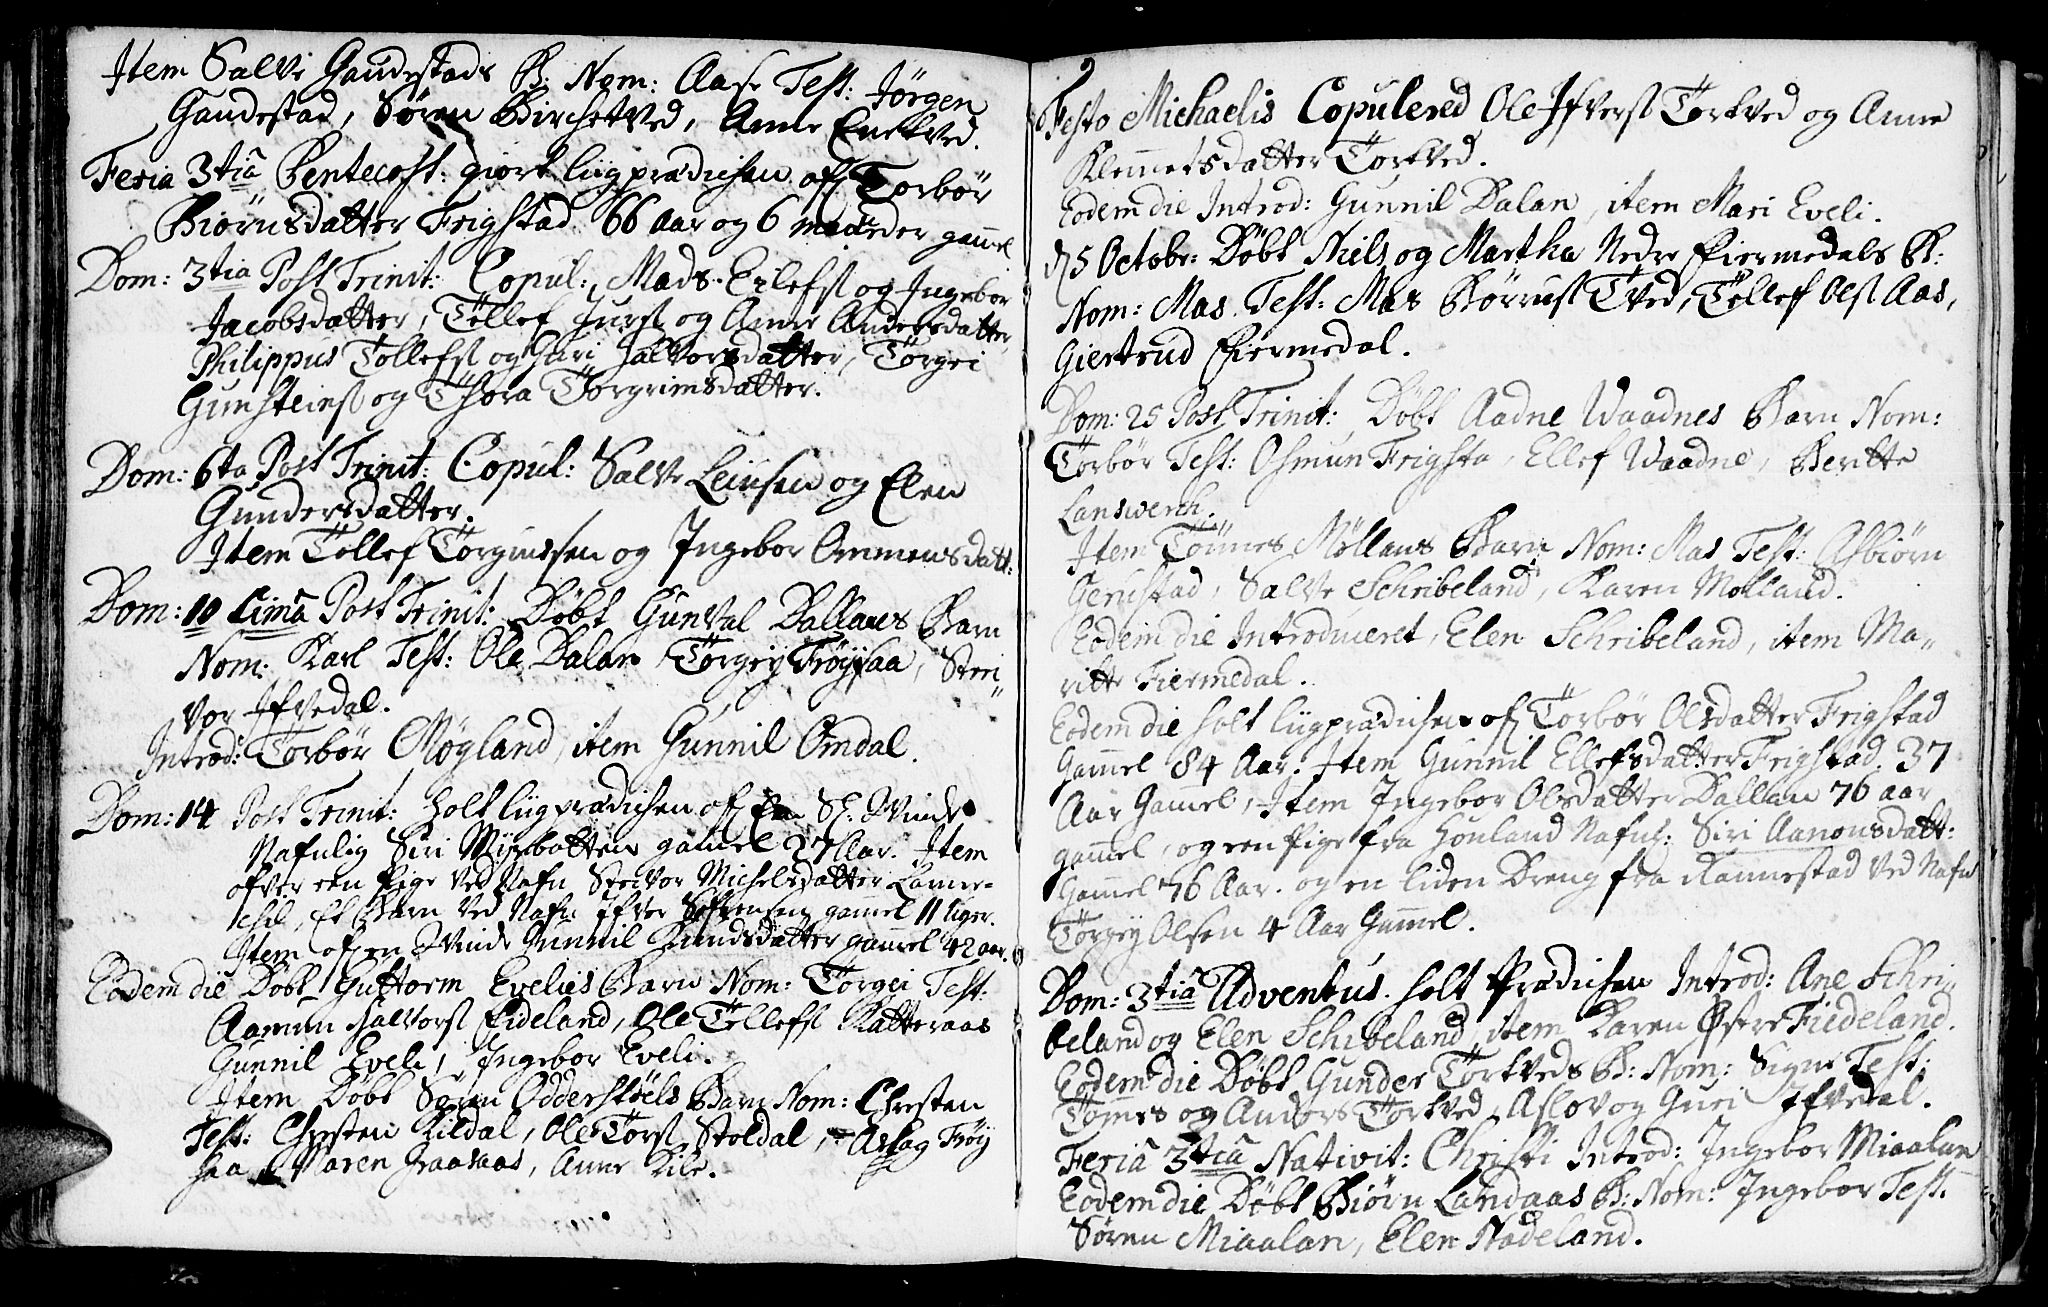 Item Salve Gaudestads B: Nom: Aase Test: Jørgen
Gaudestad, Søren Birchetved, Anne Enetved.
Feria 3tiâ Pentecost: giort liigprædichen off Torbør
Biørnsdatter Frigstad 66 aar og 6 maaneder gam̄el
Dom: 3tia Post Trinit: Copul: Mads Eilefs. og Ingebor
Jacobsdatter, Tellef Jurs. og Anne Andersdatter,
Philippus Tollefs. og Siri Halvorsdatter, Torgei
Gunsteins. og Thora Torgrimsdatter.
Dom: 6ta Post Trinit: Copul: Salve Leinsen og Elen
Gundersdatter.
Item Tellef Torginssen og Ingebor Ommensdatt:
Dom: 10 cimâ Post Trinit: Døbt Gunval Dallans Barn
Nom: Karl Test: Ole Dalan Torgey Frøysaa, Stei„
vor Ifvedal.
Introd: Torbør Møgland, item Gunnil Omdal.
Dom: 14 Post Trinit: holt liigprædichen off Sl: Qvinde
Nafnlig Siri Myrbotten gam̄el 27 Aar. Item
ofver een Pige ved Nafn Steivor Michelsdatter Lanne-
chil, Et Barn ved Nafn Ifver gam̄el 11 uger.
Item of en Qvinde Gunnil Knudsdatter gam̄el 42 aar.
Eodem die Døbt Guttorm Evelies Barn Nom: Torgei Test:
Aamun Halvors. Eideland, Ole Tellefs. Katteraas
Gunnil Eveli, Ingebor Eveli.
Item Døbt Søren Odderstøels Barn Nom: Chresten
Test: Chresten Kildal, Ole Tors. Stoldal, Aslag Frøy
saa Maren Graasaas, Anne Kile.
Festo Michaelis Copulered Ole Ifvers. Tortved og Anne
Klem̄etsdatter Tortved.
Eodem die Introd: Gunnil Dalan, item Mari Eveli.
d. 5 Octobr: Døbt Niels og Martha Nedre Fiermedals B:
Nom: Mas. Test: Mas Børrus. Tved, Tellef Ols. Aas,
Giertrud Fiermedal.
Dom: 25 Post Trinit: Døbt Aadne Vaadnes Barn Nom:
Torbør Test: Osmun Frigsta, Ellef Vaadne, Beritte
Lanswerch.
Item Tønnes Møllans Barn Nom: Mas Test: Asbiørn
Gerustad, Salve Schribeland, Karen Molland.
Eodem die Introduceret, Elen Schribeland, item Ma„
ritte Fiermedal.
Eodem die holt liigprædichen off Torbør Olsdatter Frigstad
Gam̄el 84 Aar. Item Gunnil Ellefsdatter Frigstad. 37
Aar Gam̄el, Item Ingebor Olsdatter Dallan 76 aar
gam̄el, og een Pige fra Honland Nafnl: Siri Aanonsdatt:
Gam̄el 76 Aar. og en liden Dreng fra Rannestad ved Nafn
Torgey Olsen 4 Aar Gam̄el.
Dom: 3tiâ Adventus. holt Prædichen Introd: Ane Schri„
beland og Elen Schribeland, item Karen Østre Fiedeland.
Eodem die Døbt Gunder Tortveds B: Nom: Signe Test:
Tomes og Anders Tortved, Aslov og Guri Ifvedal.
Feriâ 3tiâ Nativit: Christi Introd: Ingebor Miaalan
Eodem die Døbt Biørn Landaas B: Nom: Ingebor Test.
Søren Miaalan, Elen Nadeland.